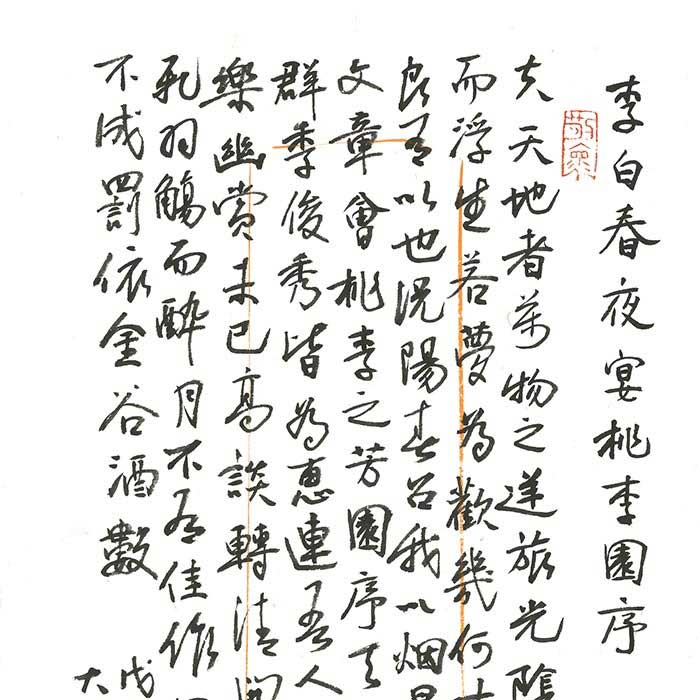 李白春夜宴桃李園序
夫天地者萬物之逆旅光陰
而浮生若夢為歡幾何
良有以也況陽春召我以烟
文章會桃李之芳園序天
群季俊秀皆為惠連吾人
樂幽賞未已高談轉清開
飛羽觴而醉月不有佳作
不成罰依金谷酒數
戊
大